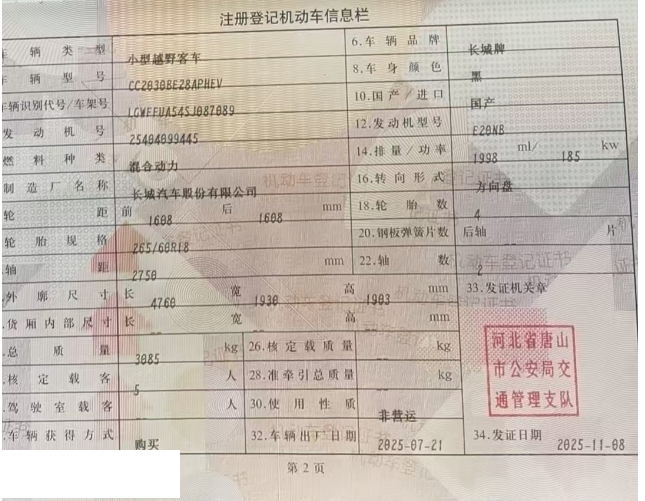 注册登记机动车信息栏
车辆类型 小型越野客车 6.车辆品牌 长城牌
车辆型号 CC2030BE28APHEV 8.车身颜色 黑
车辆识别代号/车架号 LGWFFUA545J087089 10.国产/进口 国产
发动机号 25404099445 12.发动机型号 E20NB
燃料种类 混合动力 14.排量/功率 1998 ml/ 185 kw
制造厂名称 长城汽车股份有限公司 16.转向形式 方向盘
轮距 前 1608 后 1608 mm 18.轮胎数 4
轮胎规格 265/60R18 20.钢板弹簧片数 后轴 片
轴距 2750 mm 22.轴数 2
外廓尺寸 长 4760 宽 1930 高 1903 mm 33.发证机关章
货厢内部尺寸 长 宽 高 mm
总质量 3085 kg 26.核定载质量 kg
核定载客 5 人 28.准牵引总质量 kg
驾驶室载客 人 30.使用性质 非营运
车辆获得方式 购买 32.车辆出厂日期 2025-07-21 34.发证日期 2025-11-08
河北省唐山
市公安局交
通管理支队
第2页